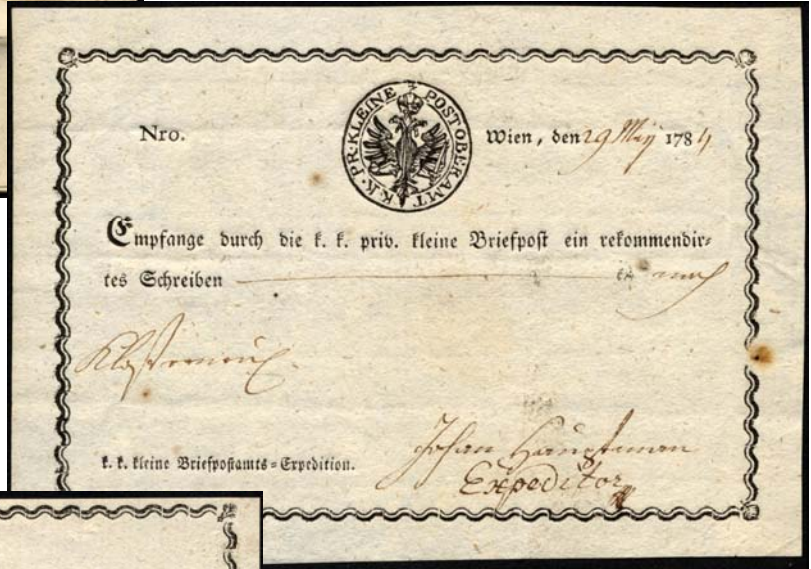 K. K. PR. KLEINE POST OBERAMT
Nro.
Wien, den 29 Maÿ 1784
Empfange durch die k. k. priv. kleine Briefpost ein rekommendir=
tes Schreiben nach
k. k. kleine Briefpostamts=Expedition.
Johan Hauptman
Expeditor